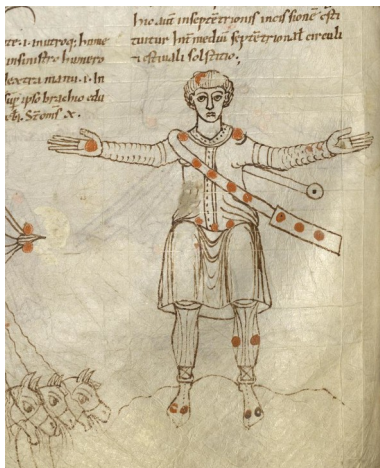 tre .i. in utroq; hume
in sinistro humero
dextra manu .i. In
sup ipso brachio cdu
hno aut in septetrionis incissione esti
tuitur Int mediu septetrional circuli
7 estiuali solstitio.